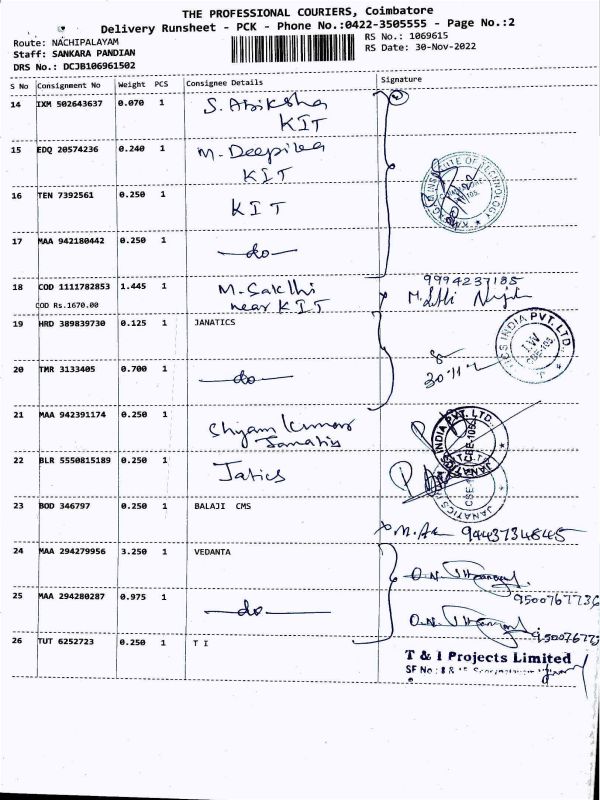 THE PROFESSIONAL COURIERS, Coimbatore
Delivery Runsheet - PCK - Phone No.:0422-3505555 - Page No.:2
Route: NACHIPALAYAM
RS No.: 1069615
Staff: SANKARA PANDIAN
RS Date: 30-Nov-2022
DRS No.: DCJB106961502
S No Consignment No Weight PCS Consignee Details Signature
14 IXM 502643637 0.070 1 S. Abiksha
KIT
15 EDQ 20574236 0.240 1 M. Deepika
KIT
16 TEN 7392561 0.250 1 KIT
17 MAA 942180442 0.250 1 —do—
18 COD 1111782853 1.445 1 M. Sakthi 9994237185
COD Rs.1670.00 near KIT
19 HRD 389839730 0.125 1 JANATICS
20 TMR 3133405 0.700 1 —do— 30.11.
21 MAA 942391174 0.250 1 Shyam Kumar
Janatis
22 BLR 5550815189 0.250 1 Jatics
23 BOD 346797 0.250 1 BALAJI CMS
24 MAA 294279956 3.250 1 VEDANTA
25 MAA 294280287 0.975 1 —do—
26 TUT 6252723 0.250 1 T I
T & I Projects Limited
SF No : 8 &